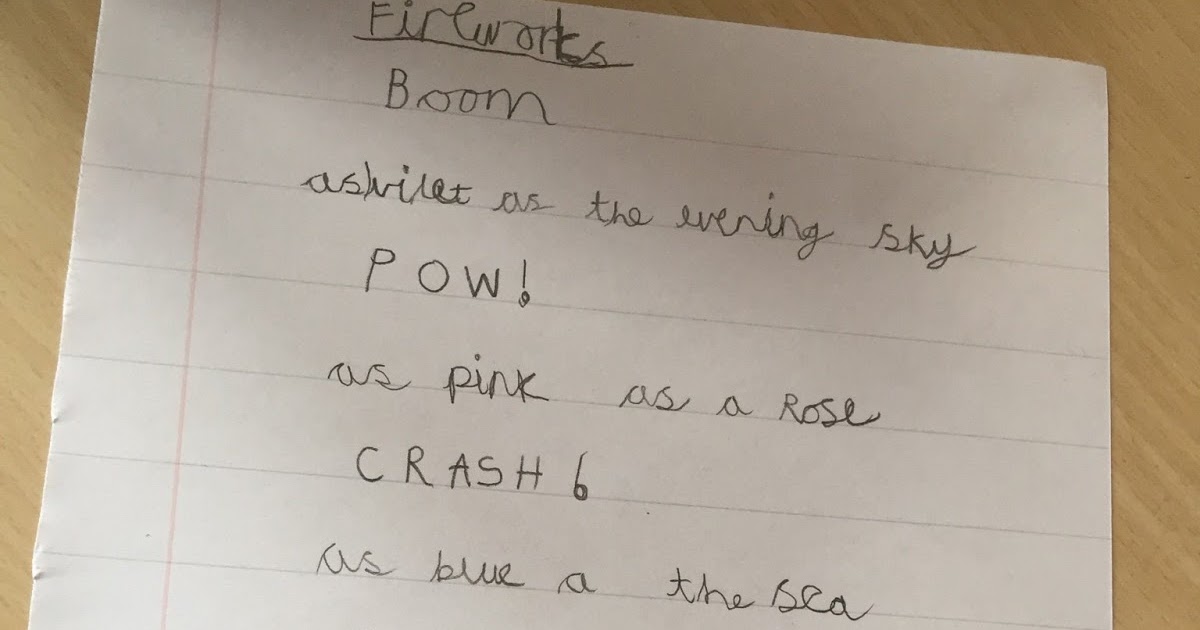 Fireworks
Boom
as vilet as the evening sky
POW!
as pink as a Rose
CRASH!
as blue a the sea